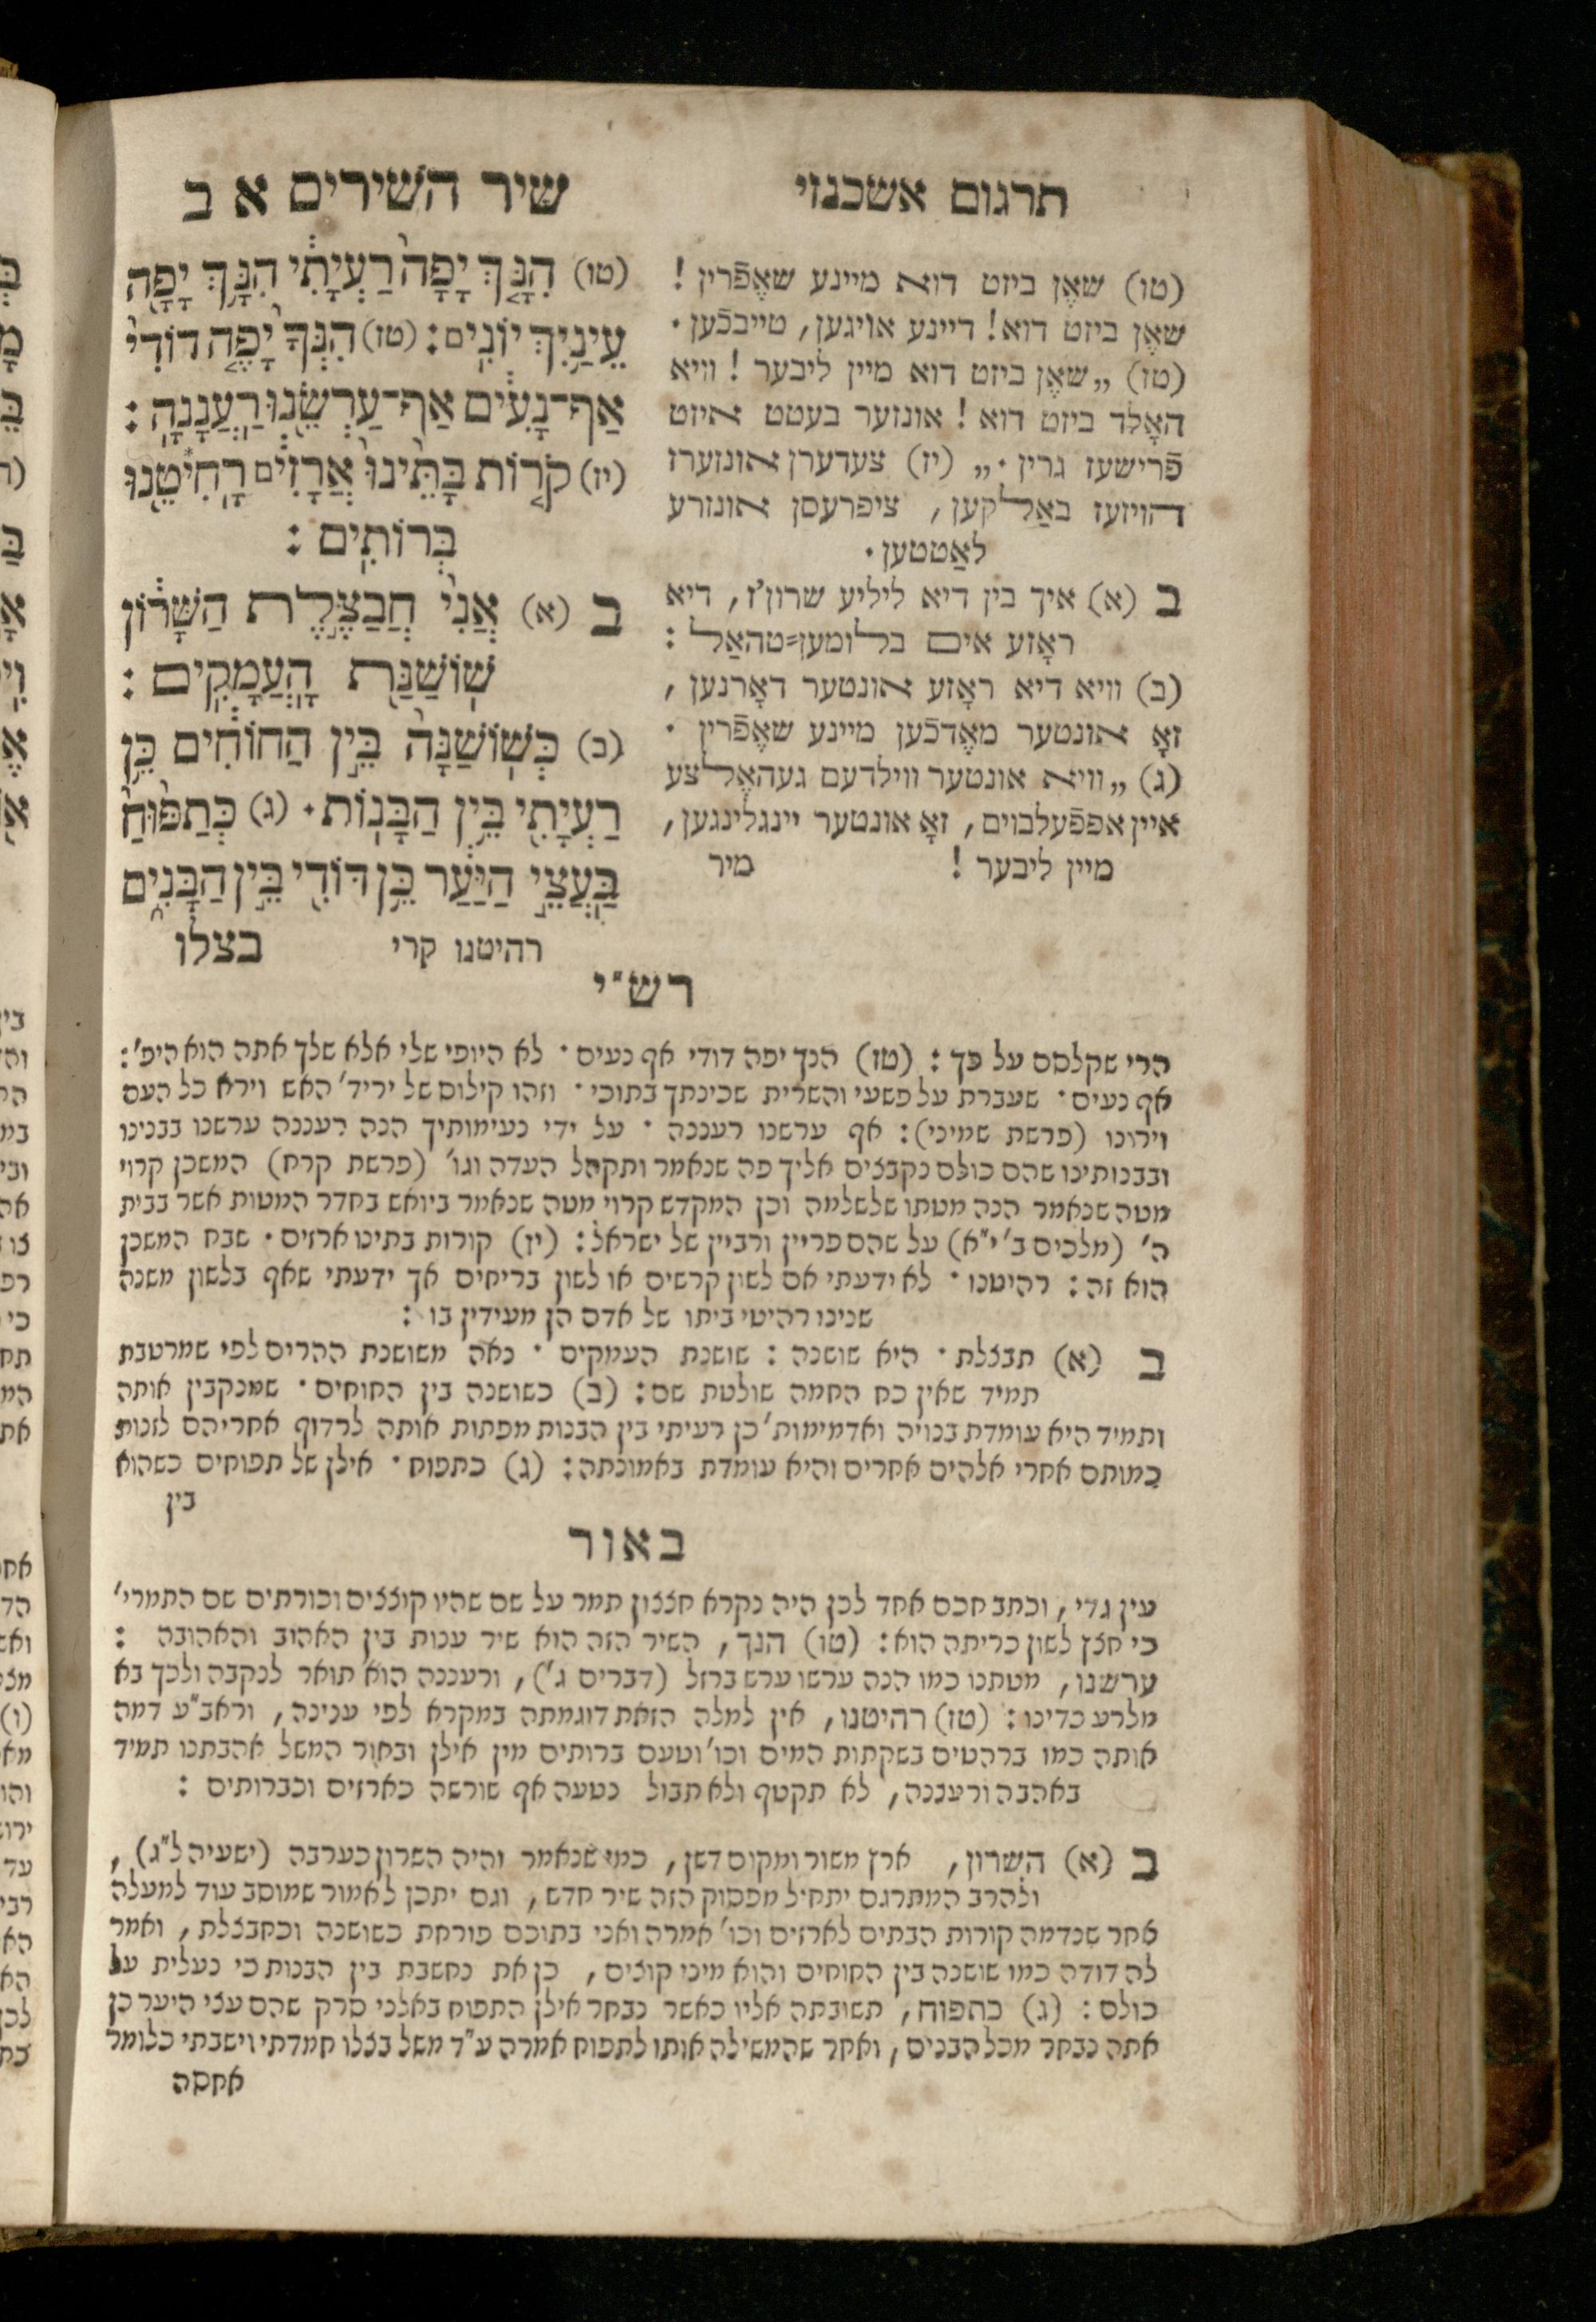 תרגום אשכנזי
שיר השירים א ב
(טו) שאֶן ביזט דוא מיינע שאֶפֿרין !
שאֶן ביזט דוא! דיינע אויגען, טייבכֿען.
(טז) „שאֶן ביזט דוא מיין ליבער ! וויא
האָלד ביזט דוא ! אונזער בעטט איזט
פֿרישעז גרין.„ (יז) צעדערן אונזערז
הויזעז באַלקען, ציפרעסן אונזרע
לאַטטען.
ב (א) איך בין דיא ליליע שרון'ז, דיא
ראָזע אים בלומען=טהאַל :
(ב) וויא דיא ראָזע אונטער דאָרנען,
זאָ אונטער מאֶדכֿען מיינע שאֶפֿרין .
(ג) „וויא אונטער ווילדעם געהאֶלצע
איין אפפֿעלבוים, זאָ אונטער יינגלינגען,
מיין ליבער ! מיר
(טו) הִנָּךְ יָפָה רַעְיָתִי הִנָּךְ יָפָה
עֵינַיִךְ יוֹנִים : (טז) הִנְּךָ יָפֶה דוֹדִי
אַף־נָעִים אַף־עַרְשֵׂנוּ רַעֲנָנָה :
(יז) קֹרוֹת בָּתֵּינוּ אֲרָזִים רָחִיטֵנוּ
בְּרוֹתִים :
ב (א) אֲנִי חֲבַצֶּלֶת הַשָּׁרוֹן
שׁוֹשַׁנַּת הָעֲמָקִים :
(ב) כְּשׁוֹשַׁנָּה בֵּין הַחוֹחִים כֵּן
רַעְיָתִי בֵּין הַבָּנוֹת. (ג) כְּתַפּוּחַ
בַּעֲצֵי הַיַּעַר כֵּן דּוֹדִי בֵּין הַבָּנִים
רהיטנו קרי בצלו
רש"י
הרי שקלסם על כך : (טז) הנך יפה דודי אף נעים . לא היופי שלי אלא שלך אתה הוא היפ' :
אף נעים . שעברת על פשעי והשרית שכינתך בתוכי . וזהו קילוס של ירידי' האש וירא כל העם
וירונו (פרשת שמיני) : אף ערשנו רעננה . על ידי נעימותיך הנה רעננה ערשנו בבנינו
ובבנותינו שהם כולם נקבצים אליך פה שנאמר ותקהל העדה וגו' (פרשת קרח) המשכן קרוי
מטה שנאמר הנה מטתו שלשלמה וכן המקדש קרוי מטה שנאמר ביואש בחדר המטות אשר בבית
ה' (מלכים ב' י"א) על שהם פריין ורביין של ישראל : (יז) קורות בתינו ארזים . שבח המשכן
הוא זה : רהיטנו . לא ידעתי אם לשון קרשים או לשון בריחים אך ידעתי שאף בלשון משנה
שנינו רהיטי ביתו של אדם הן מעידין בו :
ב (א) חבצלת . היא שושנה : שושנת העמקים . נאה משושנת ההרים לפי שמרטבת
תמיד שאין כח החמה שולטת שם : (ב) כשושנה בין החוחים . שמנקבין אותה
ותמיד היא עומדת בנויה ואדמימות' כן רעיתי בין הבנות מפתות אותה לרדוף אחריהם לזנות
כמותם אחרי אלהים אחרים והיא עומדת באמונתה : (ג) כתפוח . אילן של תפוחים כשהוא
בין
באור
עין גדי, וכתב חכם אחד לכן היה נקרא חצצון תמר על שם שהיו קוצצים וכורתים שם התמרי'
כי חצץ לשון כריתה הוא : (טו) הנך, השיר הזה הוא שיר ענות בין האהוב והאהובה :
ערשנו, מטתנו כמו הנה ערשו ערש ברזל (דברים ג'), ורעננה הוא תואר לנקבה ולכך בא
מלרע כדינו : (טז) רהיטנו, אין למלה הזאת דוגמתה במקרא לפי ענינה, וראב"ע דמה
אותה כמו ברהטים בשקתות המים וכו' וטעם ברותים מין אילן ובאור המשל אהבתנו תמיד
באהבה ורעננה, לא תקטף ולא תבול נטעה אף שורשה כארזים וכברותים :
ב (א) השרון, ארץ משור ומקום דשן, כמו שנאמר והיה השרון כערבה (ישעיה ל"ג),
ולהרב המתרגם יתחיל מפסוק הזה שיר חדש, וגם יתכן לאמור שמוסב עוד למעלה
אחר שנדמה קורות הבתים לארזים וכו' אמרה ואני בתוכם פורחת כשושנה וכחבצלת, ואמר
לה דודה כמו שושנה בין החוחים והוא מיני קוצים, כן את נחשבת בין הבנות כי נעלית על
כולם : (ג) כתפוח, תשובתה אליו כאשר נבחר אילן התפוח באלני סרק שהם עצי היער כן
אתה נבחר מכל הבנים, ואחר שהמשילה אותו לתפוח אמרה ע"ד משל בצלו חמדתי וישבתי כלומר
אחסה